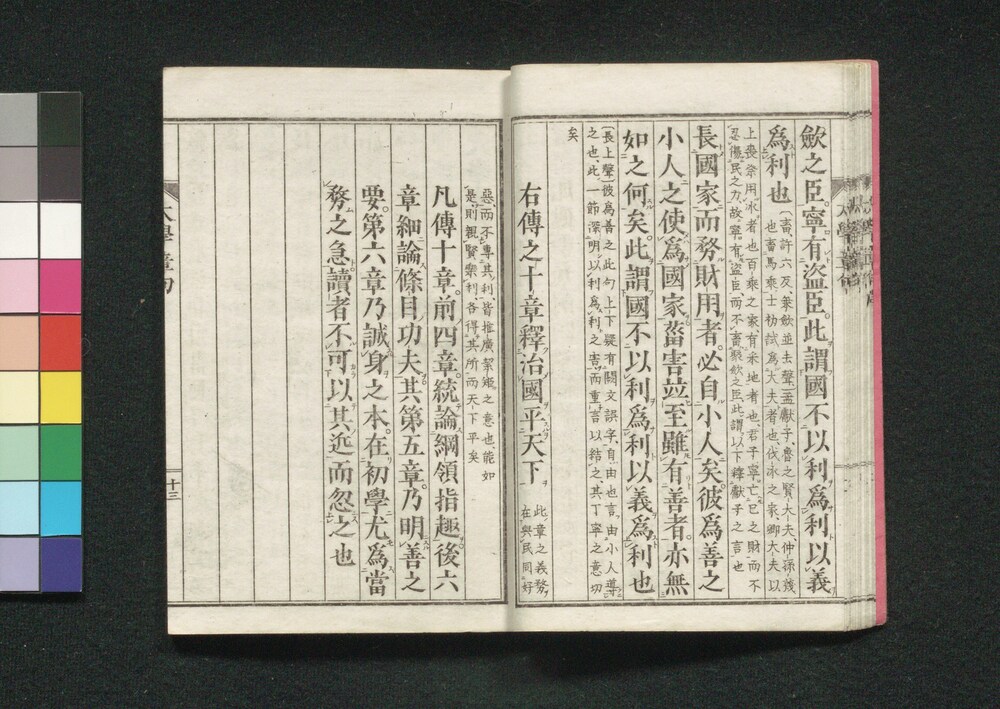 歛之臣寧有盜臣此謂國不以利爲利以義
爲利也
畜許六反乗歛並去聲孟獻子魯之賢大夫仲孫蔑
也畜馬乗士初試爲大夫者也伐冰之家卿大夫以
上喪祭用冰者也百乗之家有采地者也君子寧亡己之財而不
忍傷民之力故寧有盜臣而不畜聚歛之臣此謂以下釋獻子之言也
長國家而務財用者必自小人矣彼爲善之
小人之使爲國家菑害竝至雖有善者亦無
如之何矣此謂國不以利爲利以義爲利也
長上聲彼爲善之此句上下疑有闕文誤字自由也言由小人導
之也此一節深明以利爲利之害而重言以結之其丁寧之意切
矣
右傳之十章釋治國平天下
此章之義務
在與民同好
惡而不專其利皆推廣絜矩之意也能如
是則親賢樂利各得其所而天下平矣
凡傳十章前四章統論綱領指趣後六
章細論條目功夫其第五章乃明善之
要第六章乃誠身之本在初學尤爲當
務之急讀者不可以其近而忽之也
大學章句
十三